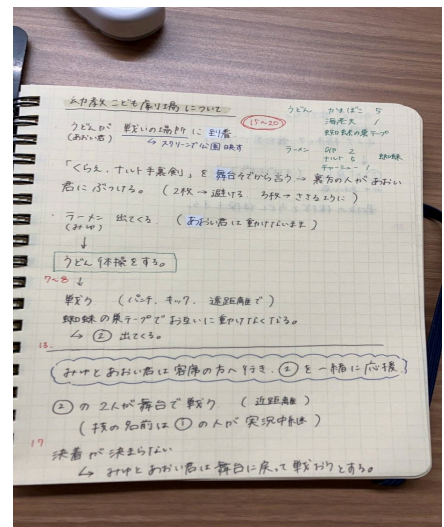 幼教こども劇場について
うどん かまぼこ 5
海老天 1
蜘蛛の巣テープ
ラーメン のり 2
ナルト 5 蜘蛛
チャーシュー 1
うどんが 戦いの場所に到着 15〜20
(あおい君) ↳ スクリーンが公園映す
「くらえ、ナルト手裏剣」を舞台そでから言う→裏方の人があおい
君にぶつける。(2枚→避ける 3枚→ささるように)
・ラーメン 出てくる。(あおい君は動けないまま)
(みゆ)
↓
うどん体操をする。
7〜8 ↓
戦う (パンチ、キック、遠距離で)
蜘蛛の巣テープでお互いに動けなくなる。
↳ ② 出てくる。
13.
みゆとあおい君は客席の方へ行き、②を一緒に応援
②の2人が舞台で戦う (近距離)
(技の名前は①の人が実況中継)
17
決着が決まらない
↳ みゆとあおい君は舞台に戻って戦おうとする。